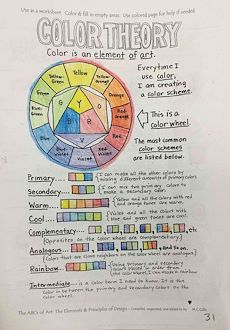 Use as a worksheet. Color & fill in empty areas. Use colored page for help if needed.
COLOR THEORY
Color is an element of art.
Everytime I
use color,
I am creating
a color scheme.
This is a
color wheel.
The most common
color schemes
are listed below.
Yellow
Yellow-Green
Yellow-Orange
Green
Orange
Blue-Green
Red-Orange
Blue
Red
Blue-Violet
Red-Violet
Violet
G Y O
B R
V
Primary....
I can make all the other colors by
mixing different amounts of primary colors.
Secondary....
I can mix two primary colors to
make a secondary color.
Warm....
Yellow and all the colors with red
and orange tones are warm.
Cool....
Violet and all the colors with
blue and green tones are cool.
Complementary....
, etc
(Opposites on the color wheel are complementary)
Analogous....
and so on.
(Colors that are close neighbors on the color wheel are analogous)
Rainbow....
Using primary & secondary
colors placed in order from
the color wheel, I can make a rainbow.
Intermediate.... is a color term I need to know. It is the
color in between the primary and secondary colors on the
color wheel.
The ABCs of Art: The Elements & Principles of Design
31